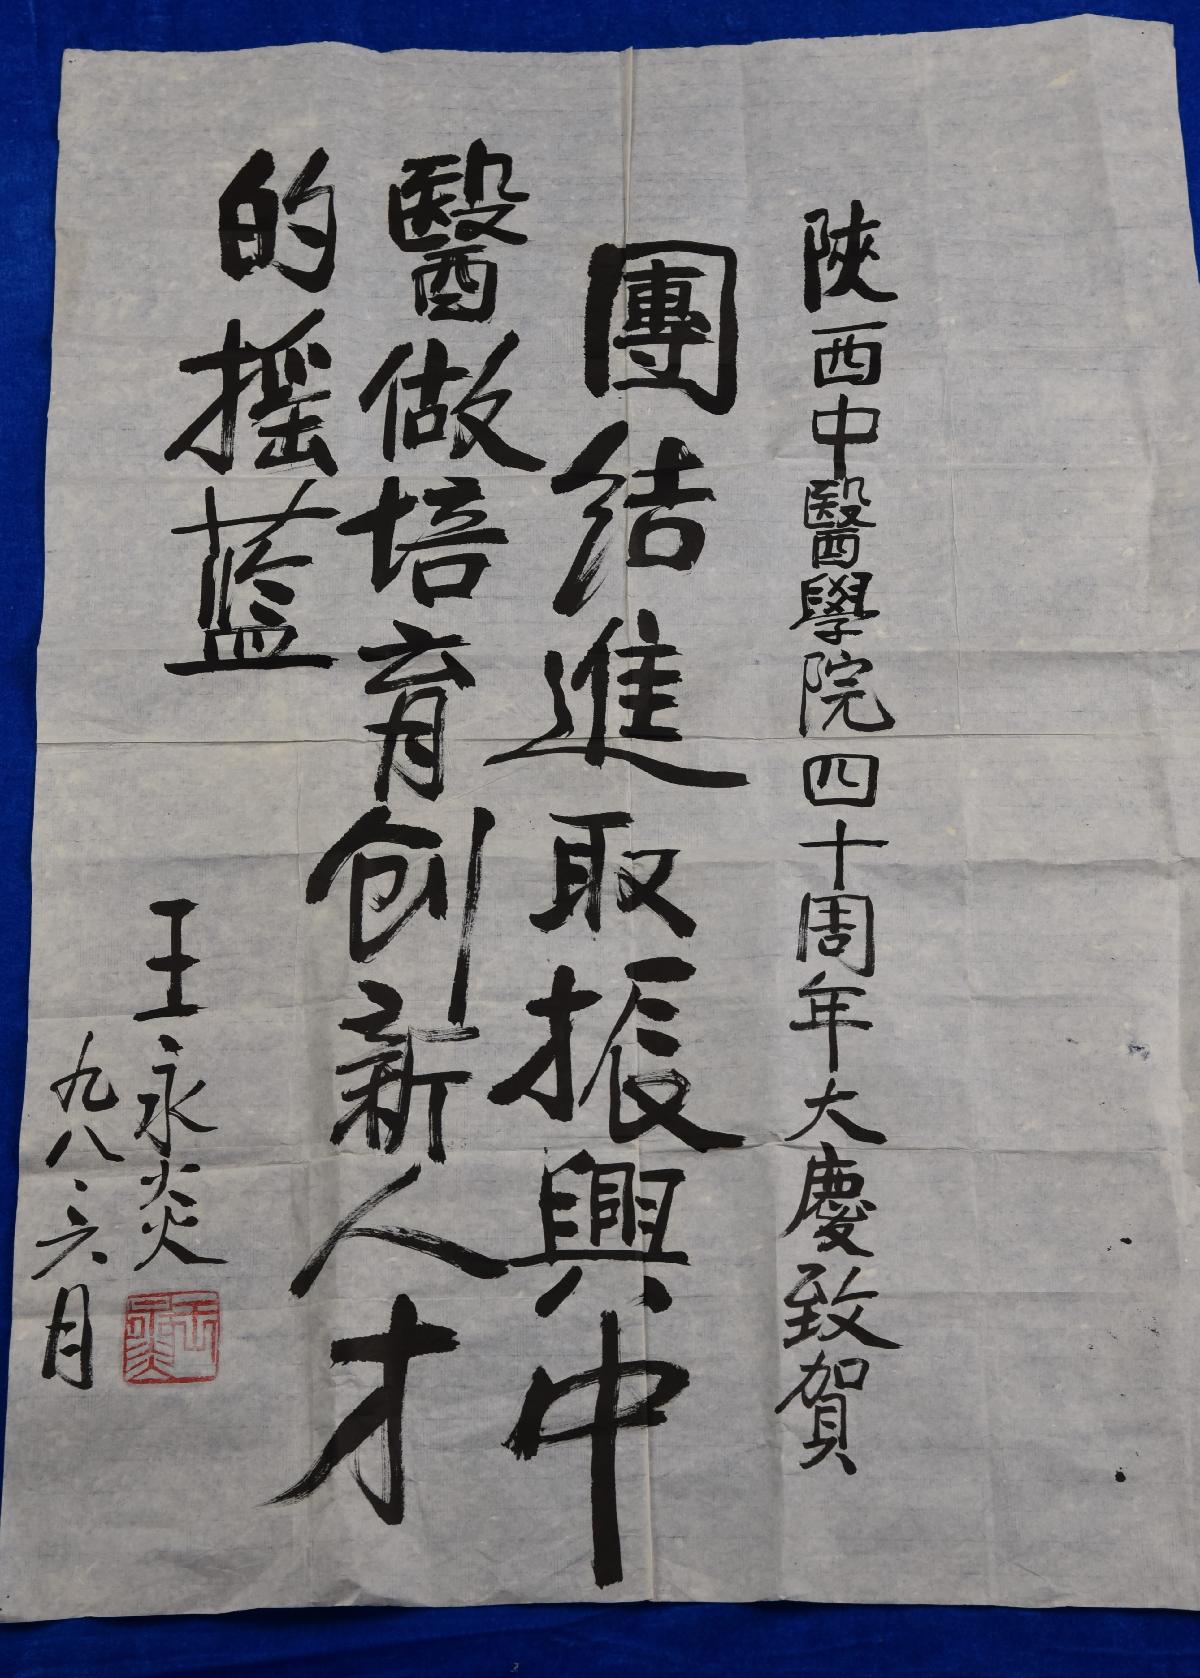 陝西中醫學院四十周年大慶致賀
團结進取振興中
醫做培育创新人才
的摇蓝
王永炎
九八·六月